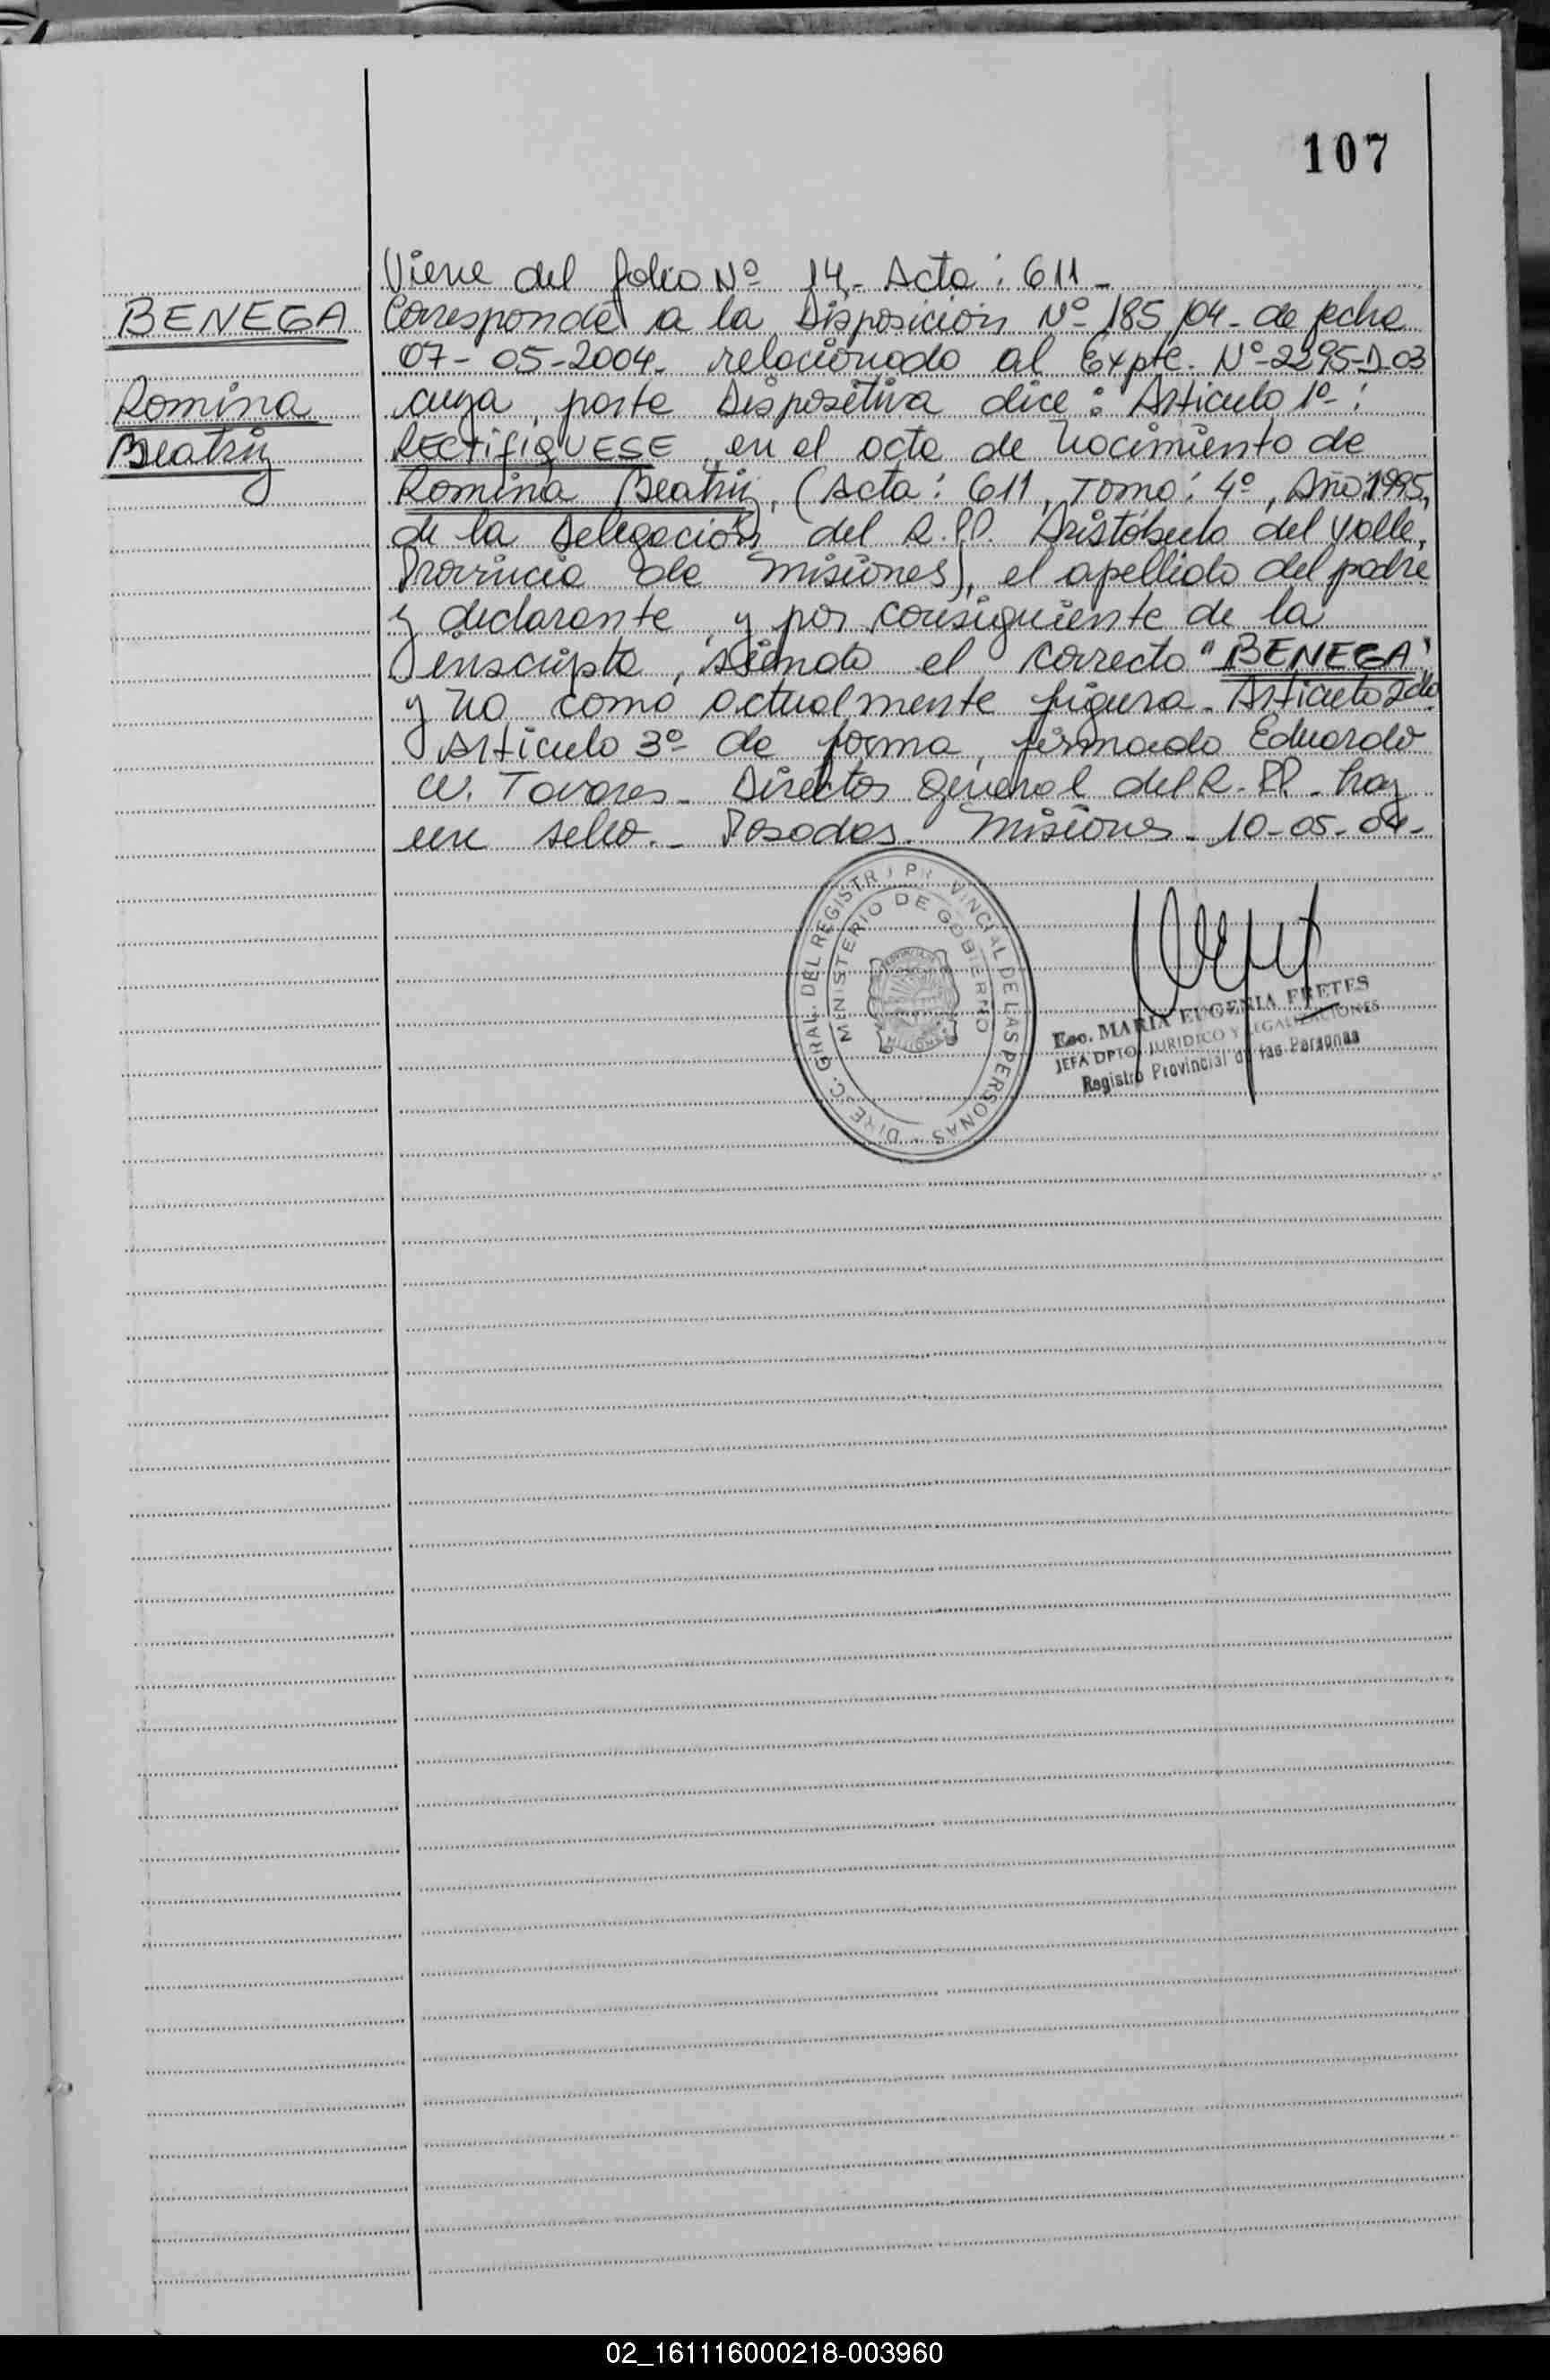 107
Viene del folio Nº 14.- Acta: 611.-
BENEGA
Corresponde a la Disposición Nº 185/04 - de fecha
07-05-2004. relacionado al Expte. Nº-2295-D-03
Romina
cuya parte Dispositiva dice: Articulo 1º-:
Beatriz
RECTIFIQUESE en el acta de nacimiento de
Romina Beatriz, (Acta: 611, Tomo: 4º, Año: 1995,
de la Delegación del R.PP. Aristóbulo del Valle,
Provincia de Misiones), el apellido del padre
y declarante, y por consiguiente de la
inscripta, siendo el correcto "BENEGA"
y no como actualmente figura. Articulo 2do
Articulo 3º- de forma, firmado Eduardo
W. Tavares - Director General del R.PP. - hay
un sello.- Posadas. Misiones - 10-05-04-
DIREC. GRAL. DEL REGISTRO PROVINCIAL DE LAS PERSONAS
MINISTERIO DE GOBIERNO
MISIONES
Esc. MARIA EUGENIA FRETES
JEFA DPTO. JURIDICO Y LEGALIZACIONES
Registro Provincial de las Personas
02_161116000218-003960